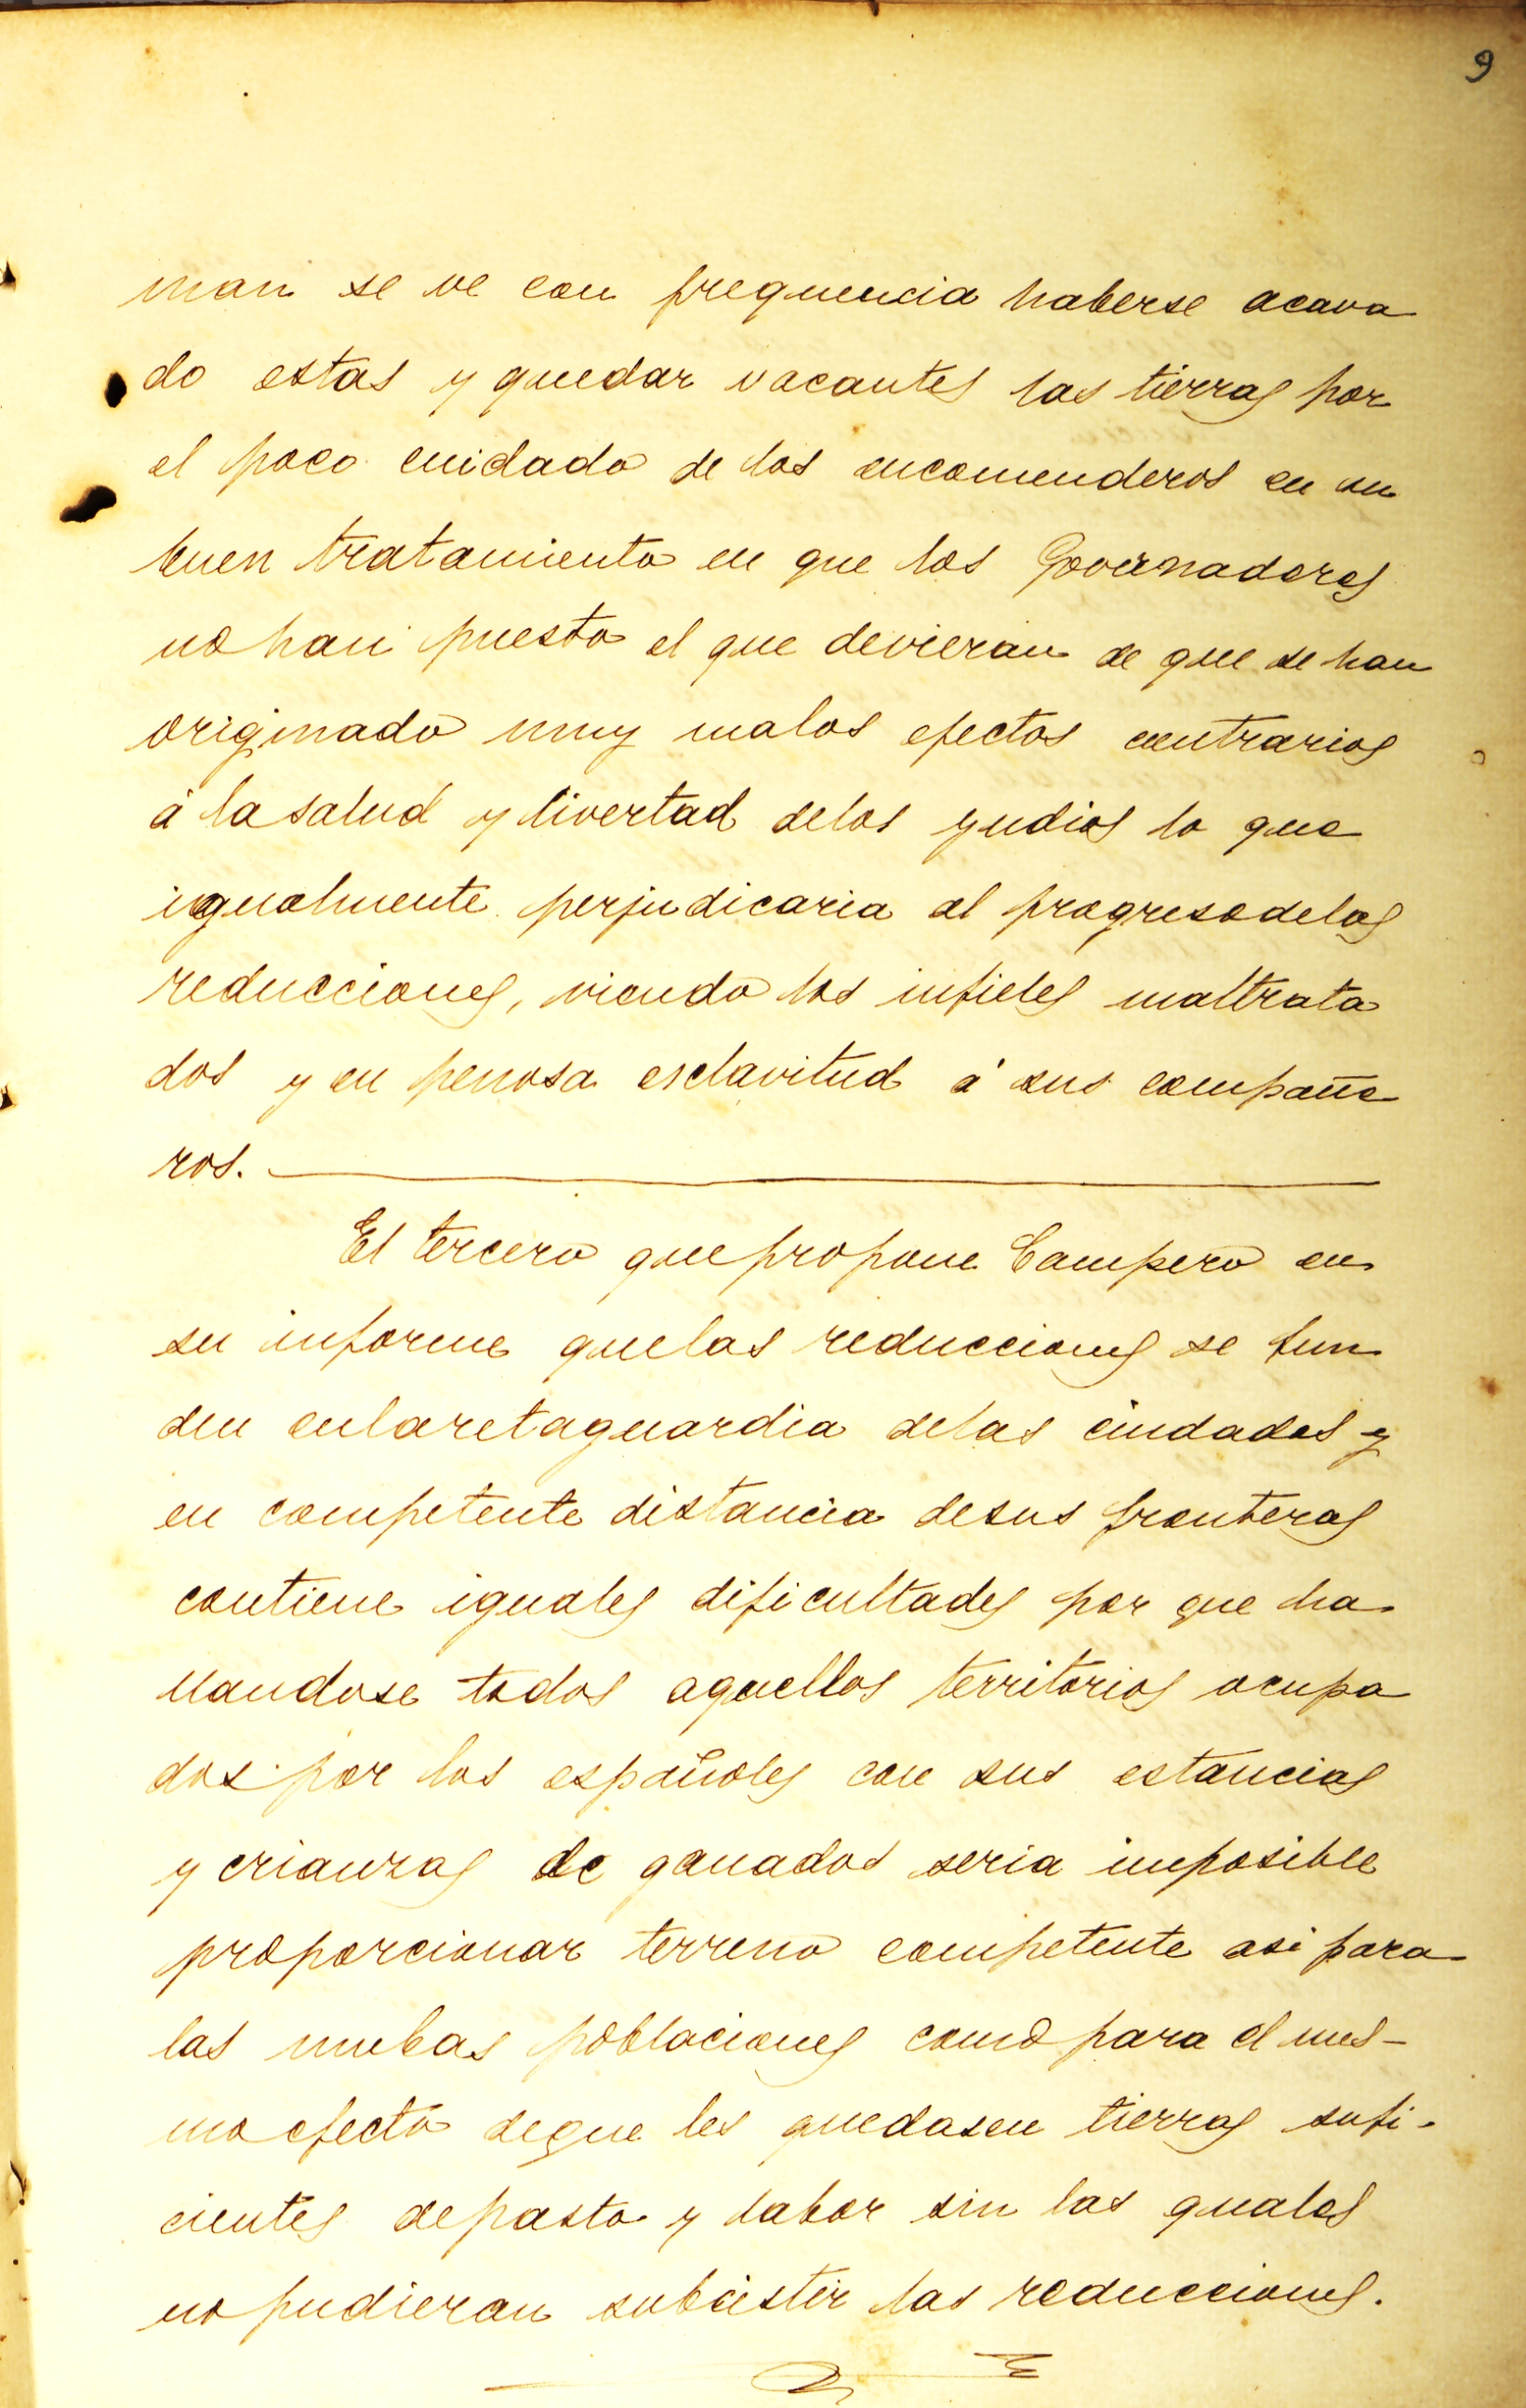 9
man se ve con frequencia haberse acava
do estas y quedar vacantes las tierras por
el poco cuidado de los encomenderos en su
buen tratamiento en que los Governadores
no han puesto el que devieran de que se han
originado muy malos efectos contrarios
á la salud y livertad delos yndios lo que
igualmente perjudicaria al progresodelas
reducciones, viendo los infieles maltrata
dos y en penosa esclavitud á sus compañe
ros.
El tercero quepropone Campero en
su informe quelas reducciones se fun
den enlaretaguardia delas ciudades y
en competente distancia desus fronteras
contiene iguales dificultades por que ha
llandose todos aquellos territorios ocupa
dos por los españoles con sus estancias
y crianzas de ganados seria imposible
proporcionar terreno competente asi para
las nuebas poblaciones como para el mes-
mo efecto deque les quedasen tierras sufi-
cientes depasto y labor sin las quales
no pudieran subcistir las reducciones.